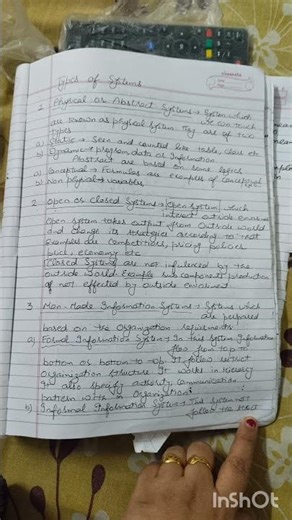 Types of Systems
1. Physical or Abstract Systems → System which
we can touch
are known as physical system. They are of two
types
a) Static → Seen and counted like table, chair etc
b) Dynamic → program, data or Information.
Abstract are based on some logics
a) Conceptual → Formulas are examples of conceptual
b) Non physical → variables
2. Open or Closed Systems → Open system which
interact outside
Open system takes output from Outside world
and change its strategies according to that
Examples are Competitions, pricing policies
economy etc
Closed Systems are not influenced by the
outside World. Example sub components production
not effected by outside
3. Man-Made Information Systems → Systems which
are prepared
based on the Organization requirements.
a) Formal Information System → In this System Information
flow from top to
bottom or bottom to top. It follow strict
Organization structure. It works in
It also specify authority, communication
pattern in Organization
b) Informal Information System → This System not
follow the strict
InShOt